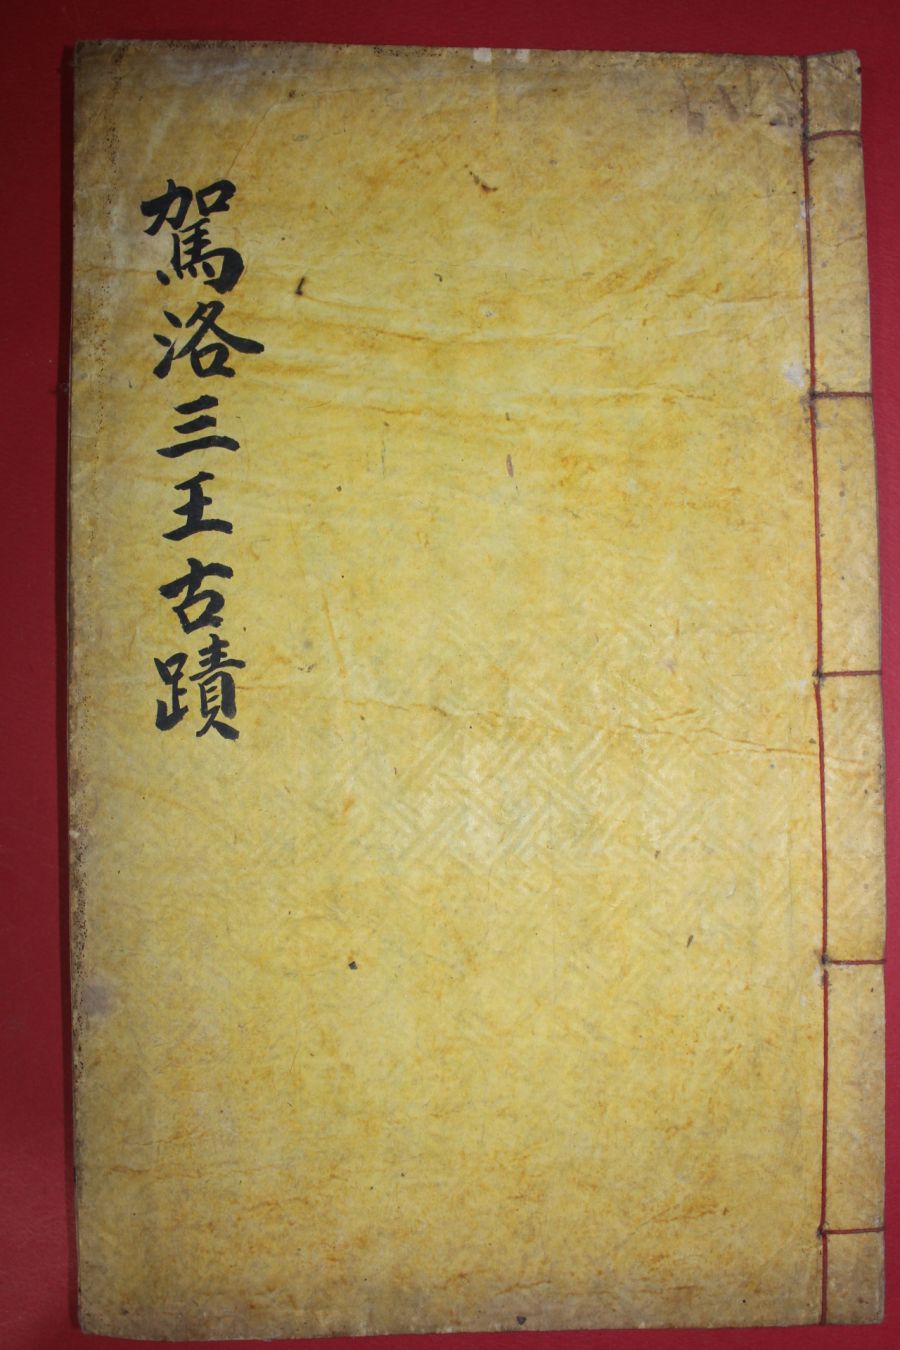 駕洛三王古蹟